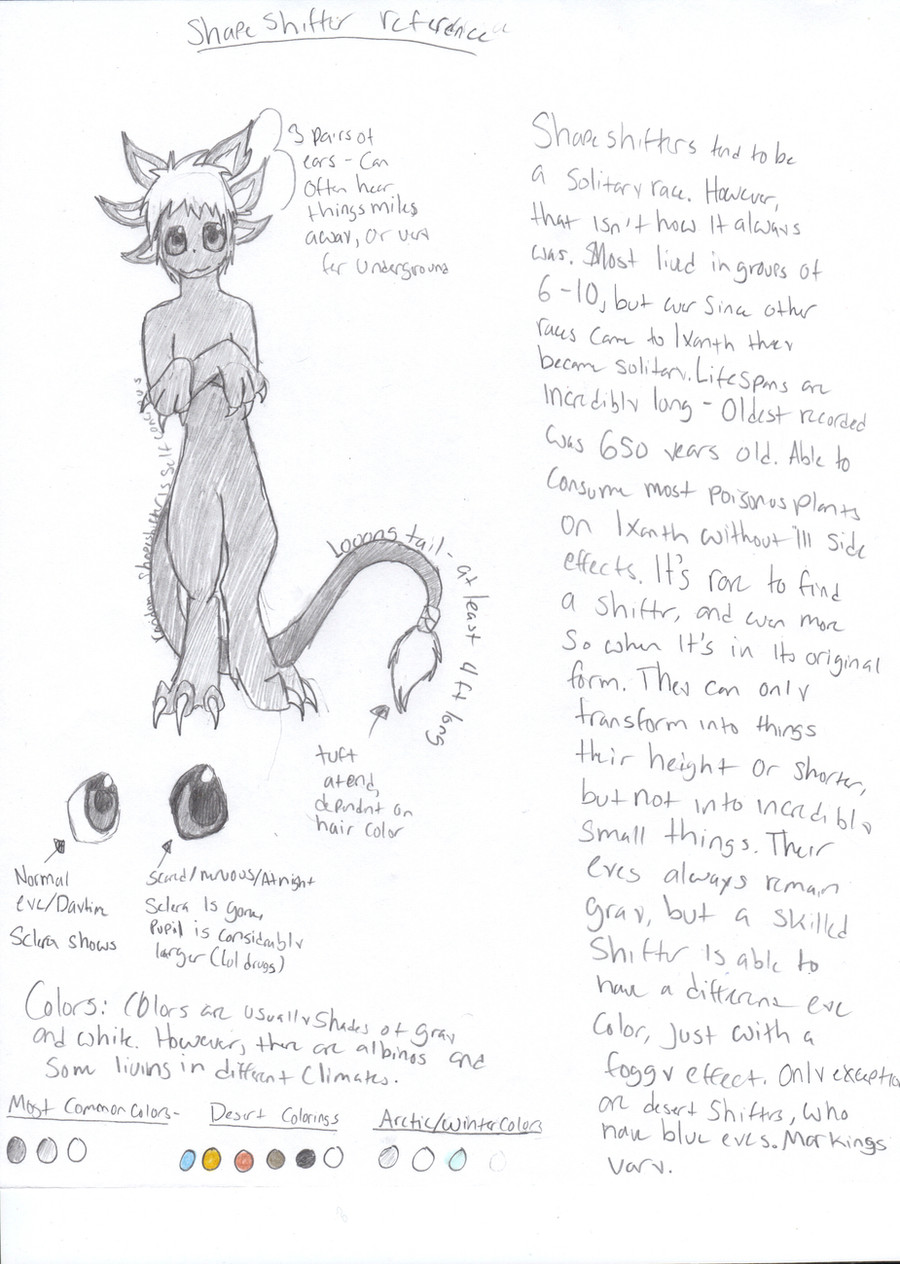 Shapeshifter reference
3 pairs of
ears - Can
Often hear
things miles
away, or very
far underground
random shapeshifter is self concious
Looong tail - at least 4 ft long
tuft
at end,
dependnt on
hair color
Normal
eye/Daytime
Sclera shows
Scared/nervous/At night
Sclera is gone,
Pupil is considerably
larger (lol drugs)
Colors: Colors are usually shades of gray
and white. However, there are albinos and
Some living in different Climates.
Most Common Colors-
Desert Colorings
Arctic/Winter Colors
Shapeshifters tend to be
a solitary race. However,
that isn't how it always
was. Most lived in groups of
6-10, but ever since other
races came to Ixanth they
became solitary. Lifespans are
Incredibly long - Oldest recorded
was 650 years old. Able to
Consume most poisonus plants
on Ixanth without ill side
effects. It's rare to find
a shifter, and even more
So when it's in its original
form. They can only
transform into things
their height or shorter,
but not into incredibly
Small things. Their
eyes always remain
gray, but a skilled
Shifter is able to
have a different eye
Color, just with a
foggy effect. Only exception
are desert Shifters, who
have blue eyes. Markings
vary.